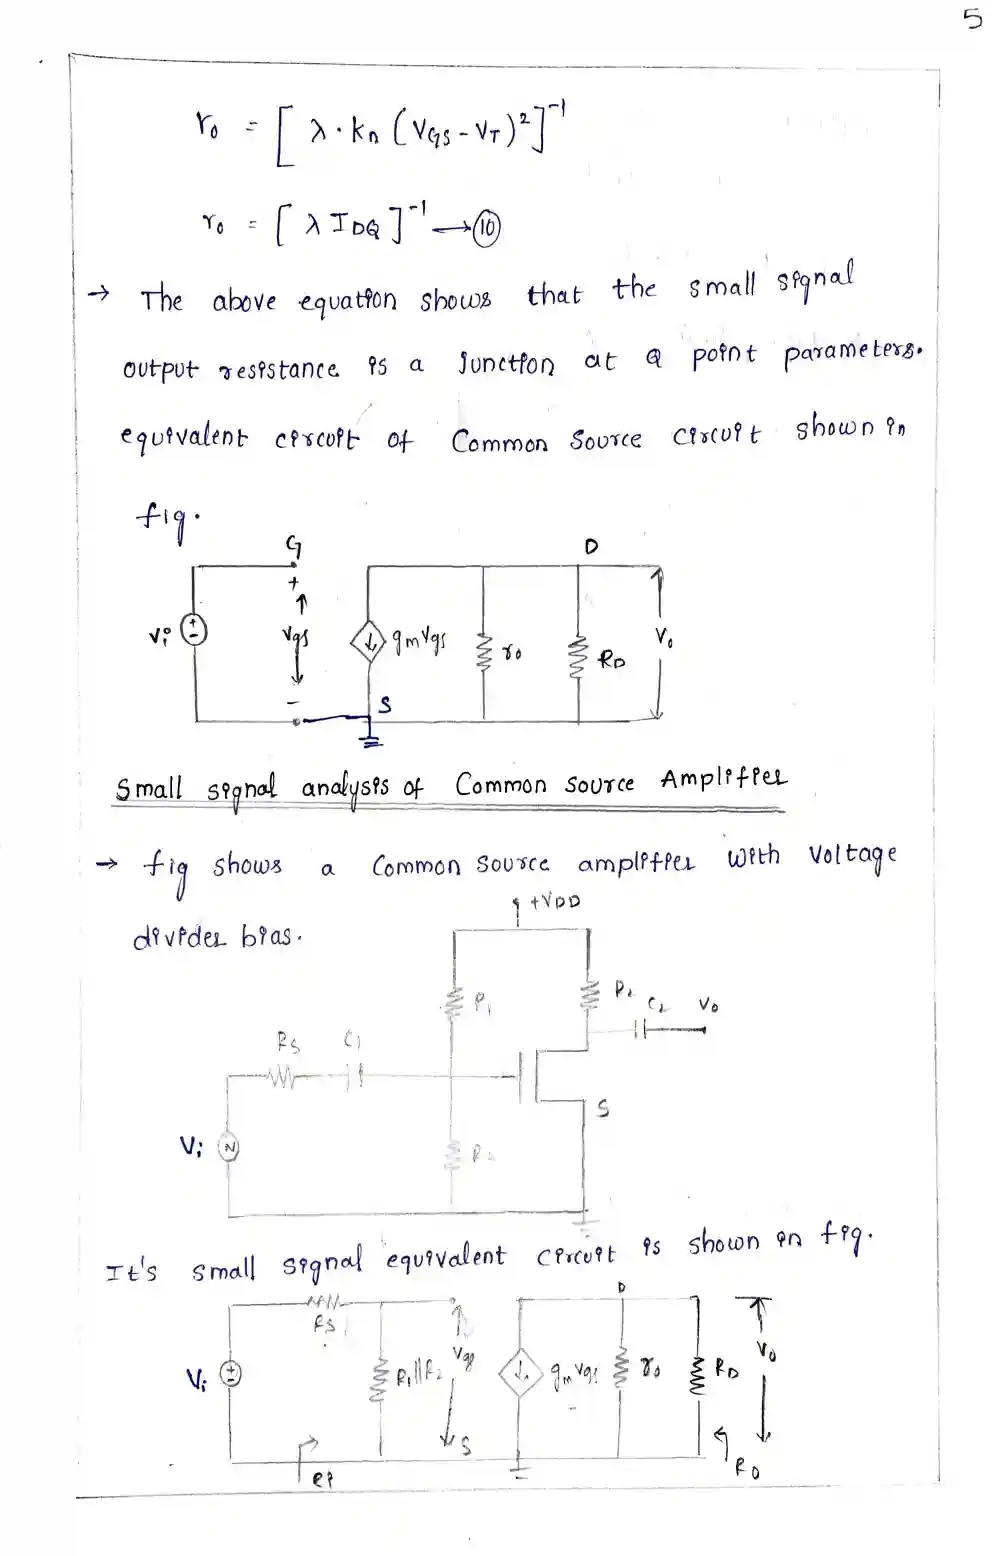 5
r₀ = [ λ · kₙ (V_GS - V_T)² ]⁻¹
r₀ = [ λ I_DQ ]⁻¹ → ⑩
→ The above equation shows that the small signal
output resistance is a Junction at Q point parameters.
equivalent circuit of Common Source circuit shown in
fig.
G D
+
Vi + - Vgs gmVgs r₀ R_D V₀
-
S
Small signal analysis of Common Source Amplifier
→ fig shows a Common source amplifier with Voltage
divider bias.
+VDD
R₁ C₂ V₀
Rs C₁
S
Vi
It's small signal equivalent circuit is shown in fig.
D
Rs
Vi + - R₁||R₂ Vgs gmVgs r₀ R_D V₀
S
Ri R₀